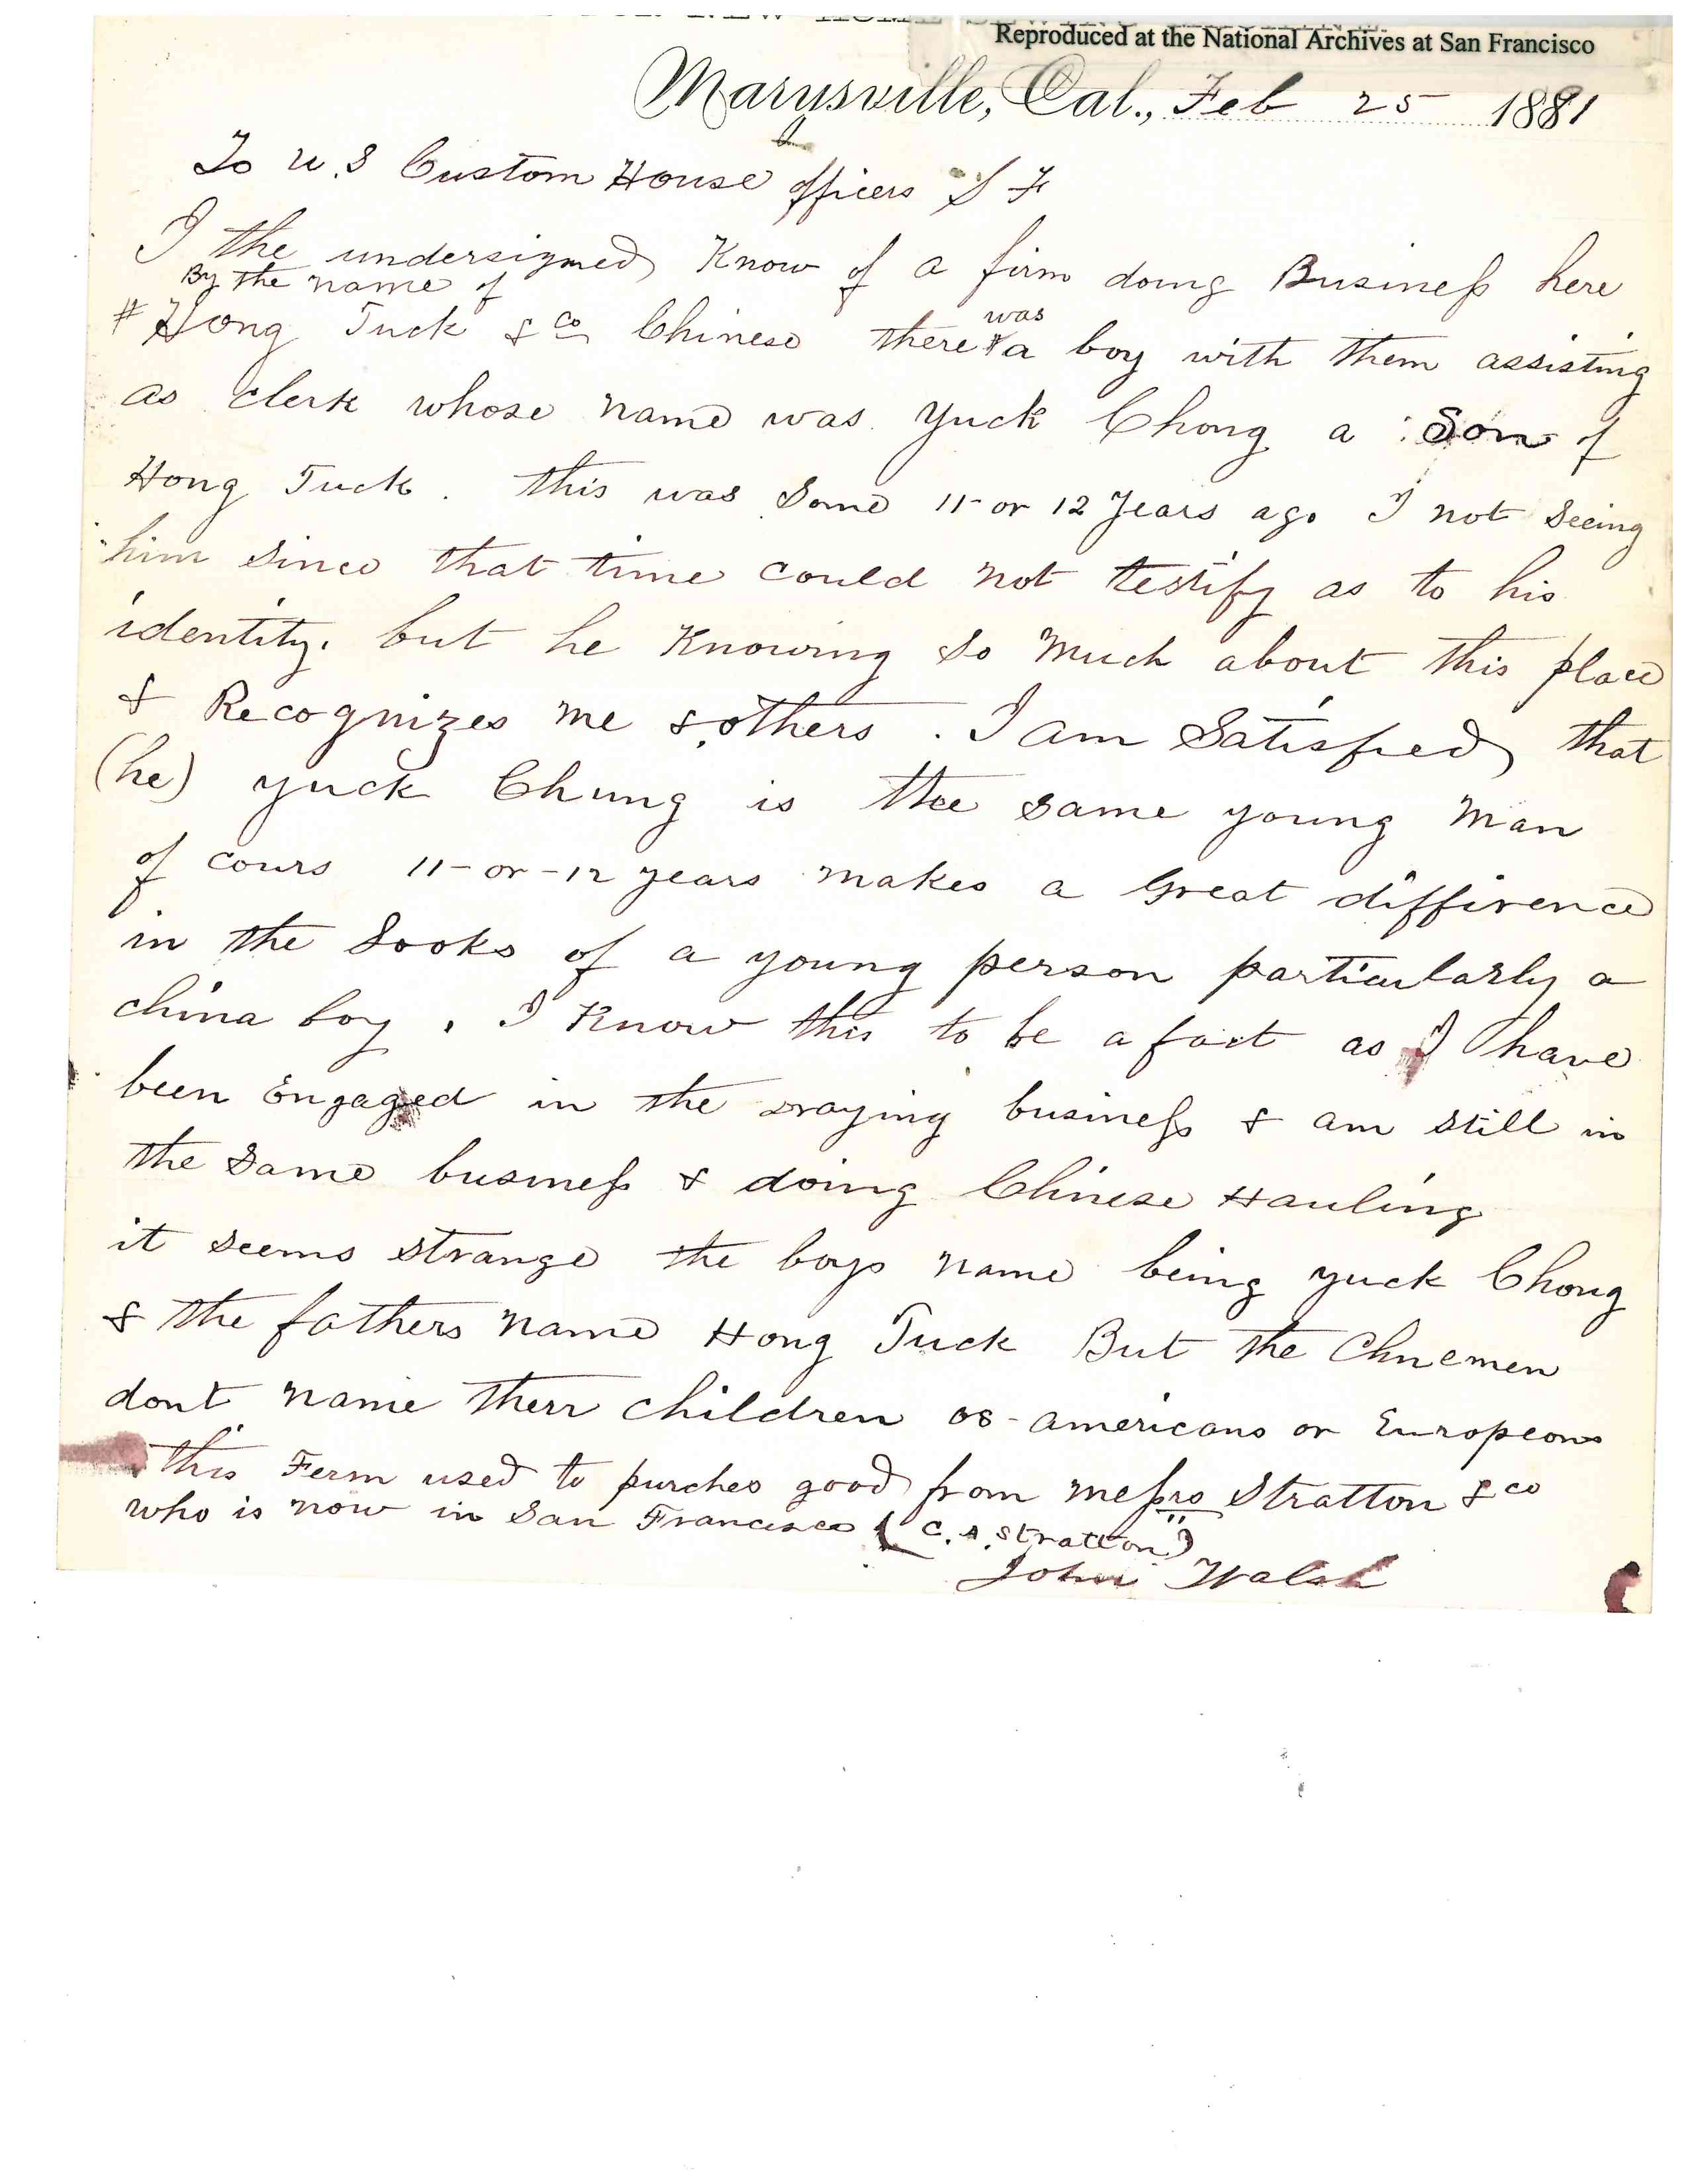 Reproduced at the National Archives at San Francisco
Marysville, Cal., Feb 25 1881
To U.S Custom House officers S F
I the undersigned Know of a firm doing Business here
By the name of
# Hong Tuck & co Chinese there was a boy with them assisting
as clerk whose name was Yuck Chong a Son of
Hong Tuck. this was Some 11 or 12 Years ago I not Seeing
him Since that time could not testify as to his
identity. but he Knowing So Much about this place
& Recognizes me & others. I am Satisfied that
(he) yuck Chung is the same young Man
of cours 11-or-12 years makes a Great diffirence
in the Looks of a young person particularly a
china boy. I Know this to be a fact as I have
been Engaged in the draying business & am still in
the Same business & doing Chinese Hauling
it Seems Strange the boys name being yuck Chong
& the fathers name Hong Tuck But the Chnemen
dont name therr children as americans or Europeans
this Ferm used to purches good from messrs Stratton & co
who is now in San Francisco (C. A. Stratton)
John Walsh